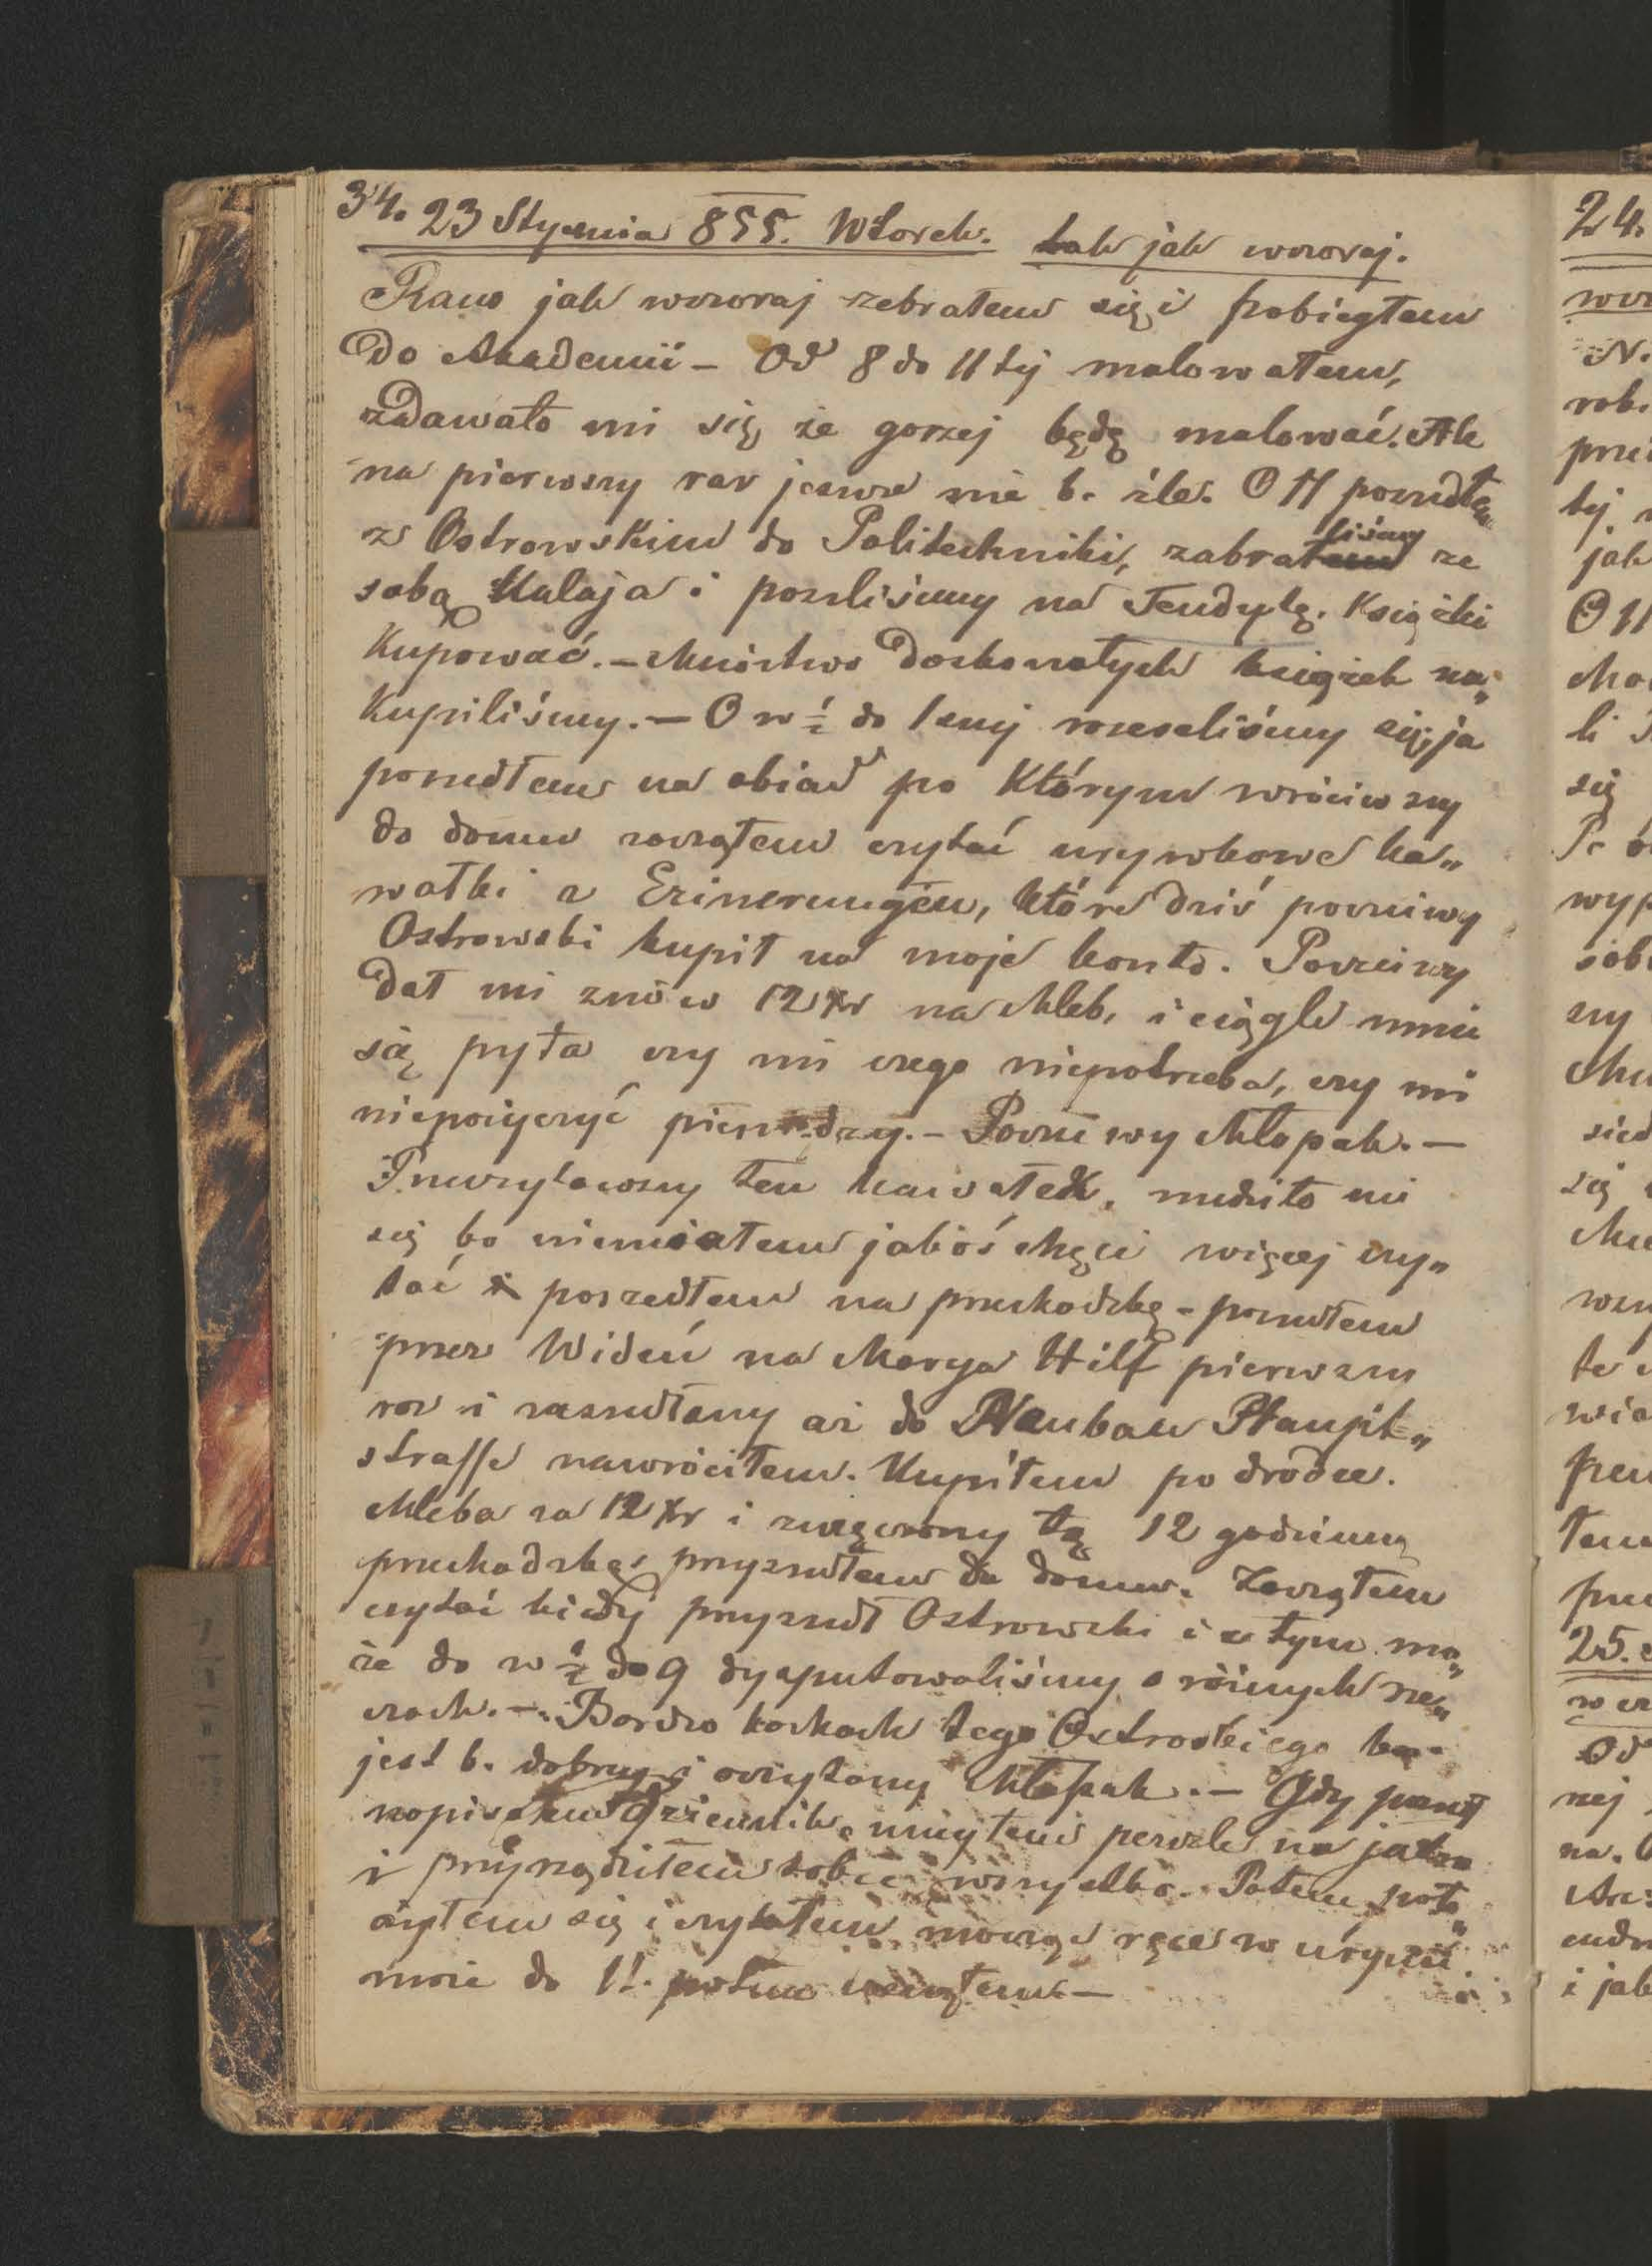 34. 23 Stycznia 855. Wtorek. tak jak wczoraj.
Rano jak wczoraj zebrałem się i pobiegłem
do Akademii – Od 8 do 11tej malowałem,
zdawało mi się że gorzej będę malować. Ale
na pierwszy raz jeszcze nie b. źle. O 11 poszedłem
z Ostrowskim do Politechniki, zabraliśmy ze
sobą Kulaja i poszliśmy na Tendytę. Książki
kupować. – Mnóstwo doskonałych książek na„
kupiliśmy. – O w ½ do 1szej rozeszliśmy się, ja
poszedłem na obiad po którym wróciwszy
do domu zacząłem czytać urywkowe ka„
wałki z Erinerungen, które dziś poczciwy
Ostrowski kupił na moje konto. Poczciwy
dał mi znów 12 xr na chleb, i ciągle mnie
się pyta czy mi czego niepotrzeba, czy mi
niepożyczyć pieniędzy. – Poczciwy chłopak. –
Przeczytawszy ten kawałek, nudziło mi
się bo niemiałem jakoś chęci więcej czy„
tać i poszedłem na przechadzkę – poszedłem
przez Wideń na Marya Hilf pierwszy
raz i zaszedłszy aż do Neubau Haupt„
strasse nawróciłem. Kupiłem po drodze.
chleba za 12 xr i zmęczony tą 12 godzinną
przechadzką przyszedłem do domu. Zacząłem
czytać kiedy przyszedł Ostrowski i z tym mo„
że do w ½ do 9 dysputowaliśmy o różnych rze„
czach. – Bardzo kocham tego Ostrowskiego bo
jest b. dobry i oczytany chłopak. – Gdy
zapisałem dziennik, umyłem penzle na jutro
i przyrządziłem sobie wszystko. Potem poło„
żyłem się i czytałem mocząc ręce w urynie
może do 11. potem usnąłem. –
24.